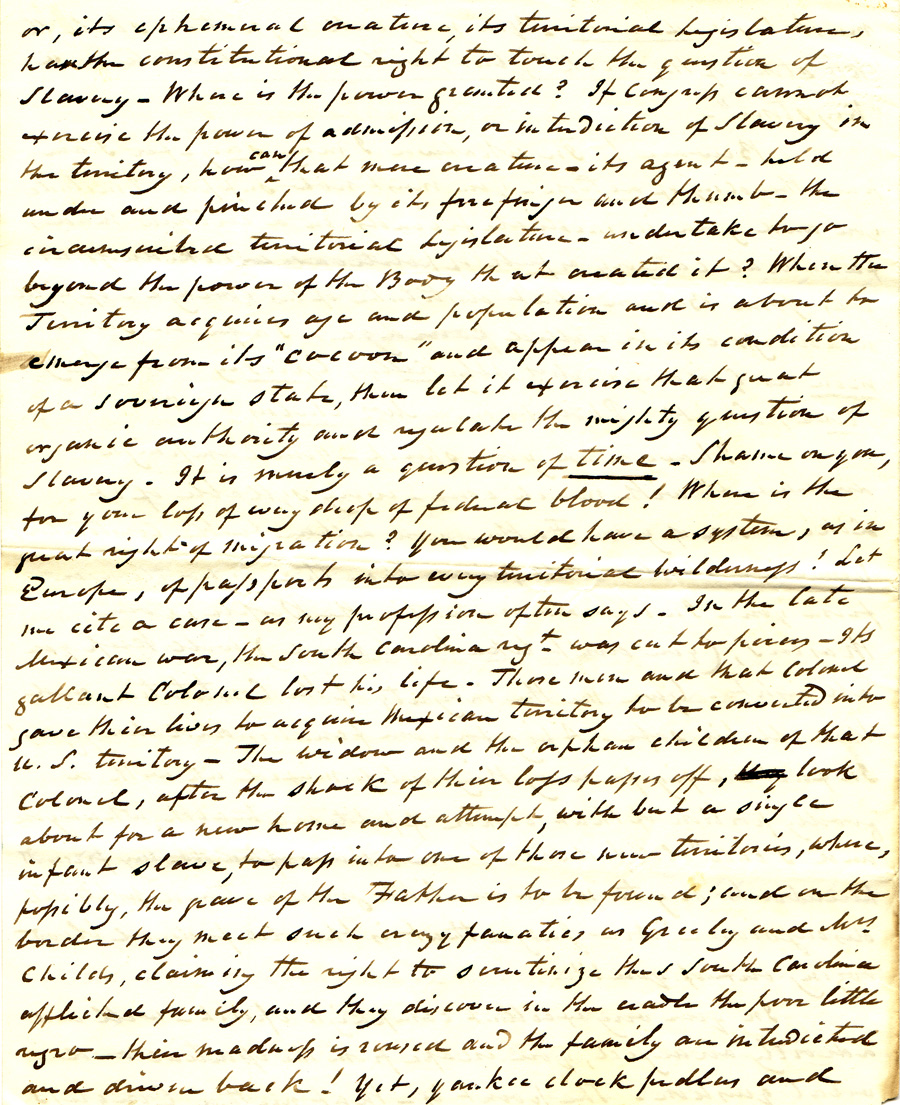 or, its ephemeral creature, its territorial legislature,
has the constitutional right to touch the question of
Slavery - Where is the power granted? If Congress cannot
exercise the power of admission, or interdiction of Slavery in
the territory, how can that mere creature - its agent - held
under and pinched by its forefinger and thumb - the
circumscribed territorial legislature - undertake to go
beyond the power of the Body that created it? When the
Territory acquires age and population and is about to
emerge from its "cocoon" and appear in its condition
of a sovereign state, then let it exercise that great
organic authority and regulate the mighty question of
Slavery - It is merely a question of time - Shame on you,
for your loss of every drop of federal blood! Where is the
great right of migration? You would have a system, as in
Europe, of passports into every territorial wilderness! Let
me cite a case - as my profession often says - In the late
Mexican war, the South Carolina regt. was cut to pieces - Its
gallant Colonel lost his life - Those men and that Colonel
gave their lives to acquire Mexican territory to be converted into
U. S. territory - The widow and the orphan children of that
Colonel, after the shock of their loss passes off, they look
about for a new home and attempt, with but a single
infant slave, to pass into one of those new territories, where,
possibly, the grave of the Father is to be found; and on the
border they meet such crazy fanatics as Greeley and Mrs.
Childs, claiming the right to scrutinize this South Carolina
afflicted family, and they discover in the cradle the poor little
negro - their madness is roused and the family are interdicted
and driven back! Yet, yankee clock pedlars and